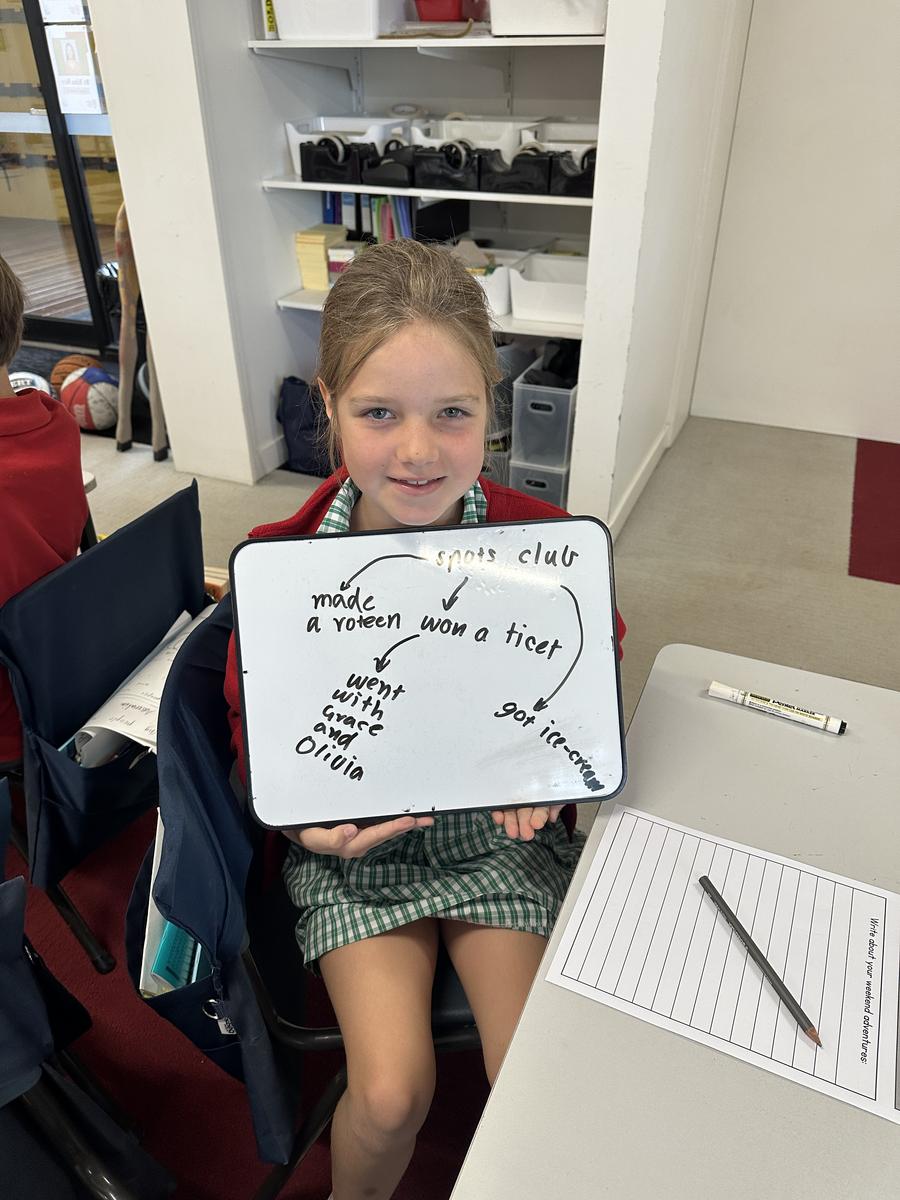 spots club
made
a roteen
won a ticet
went
with
Grace
and
Olivia
got ice-cream
Write about your weekend adventures: